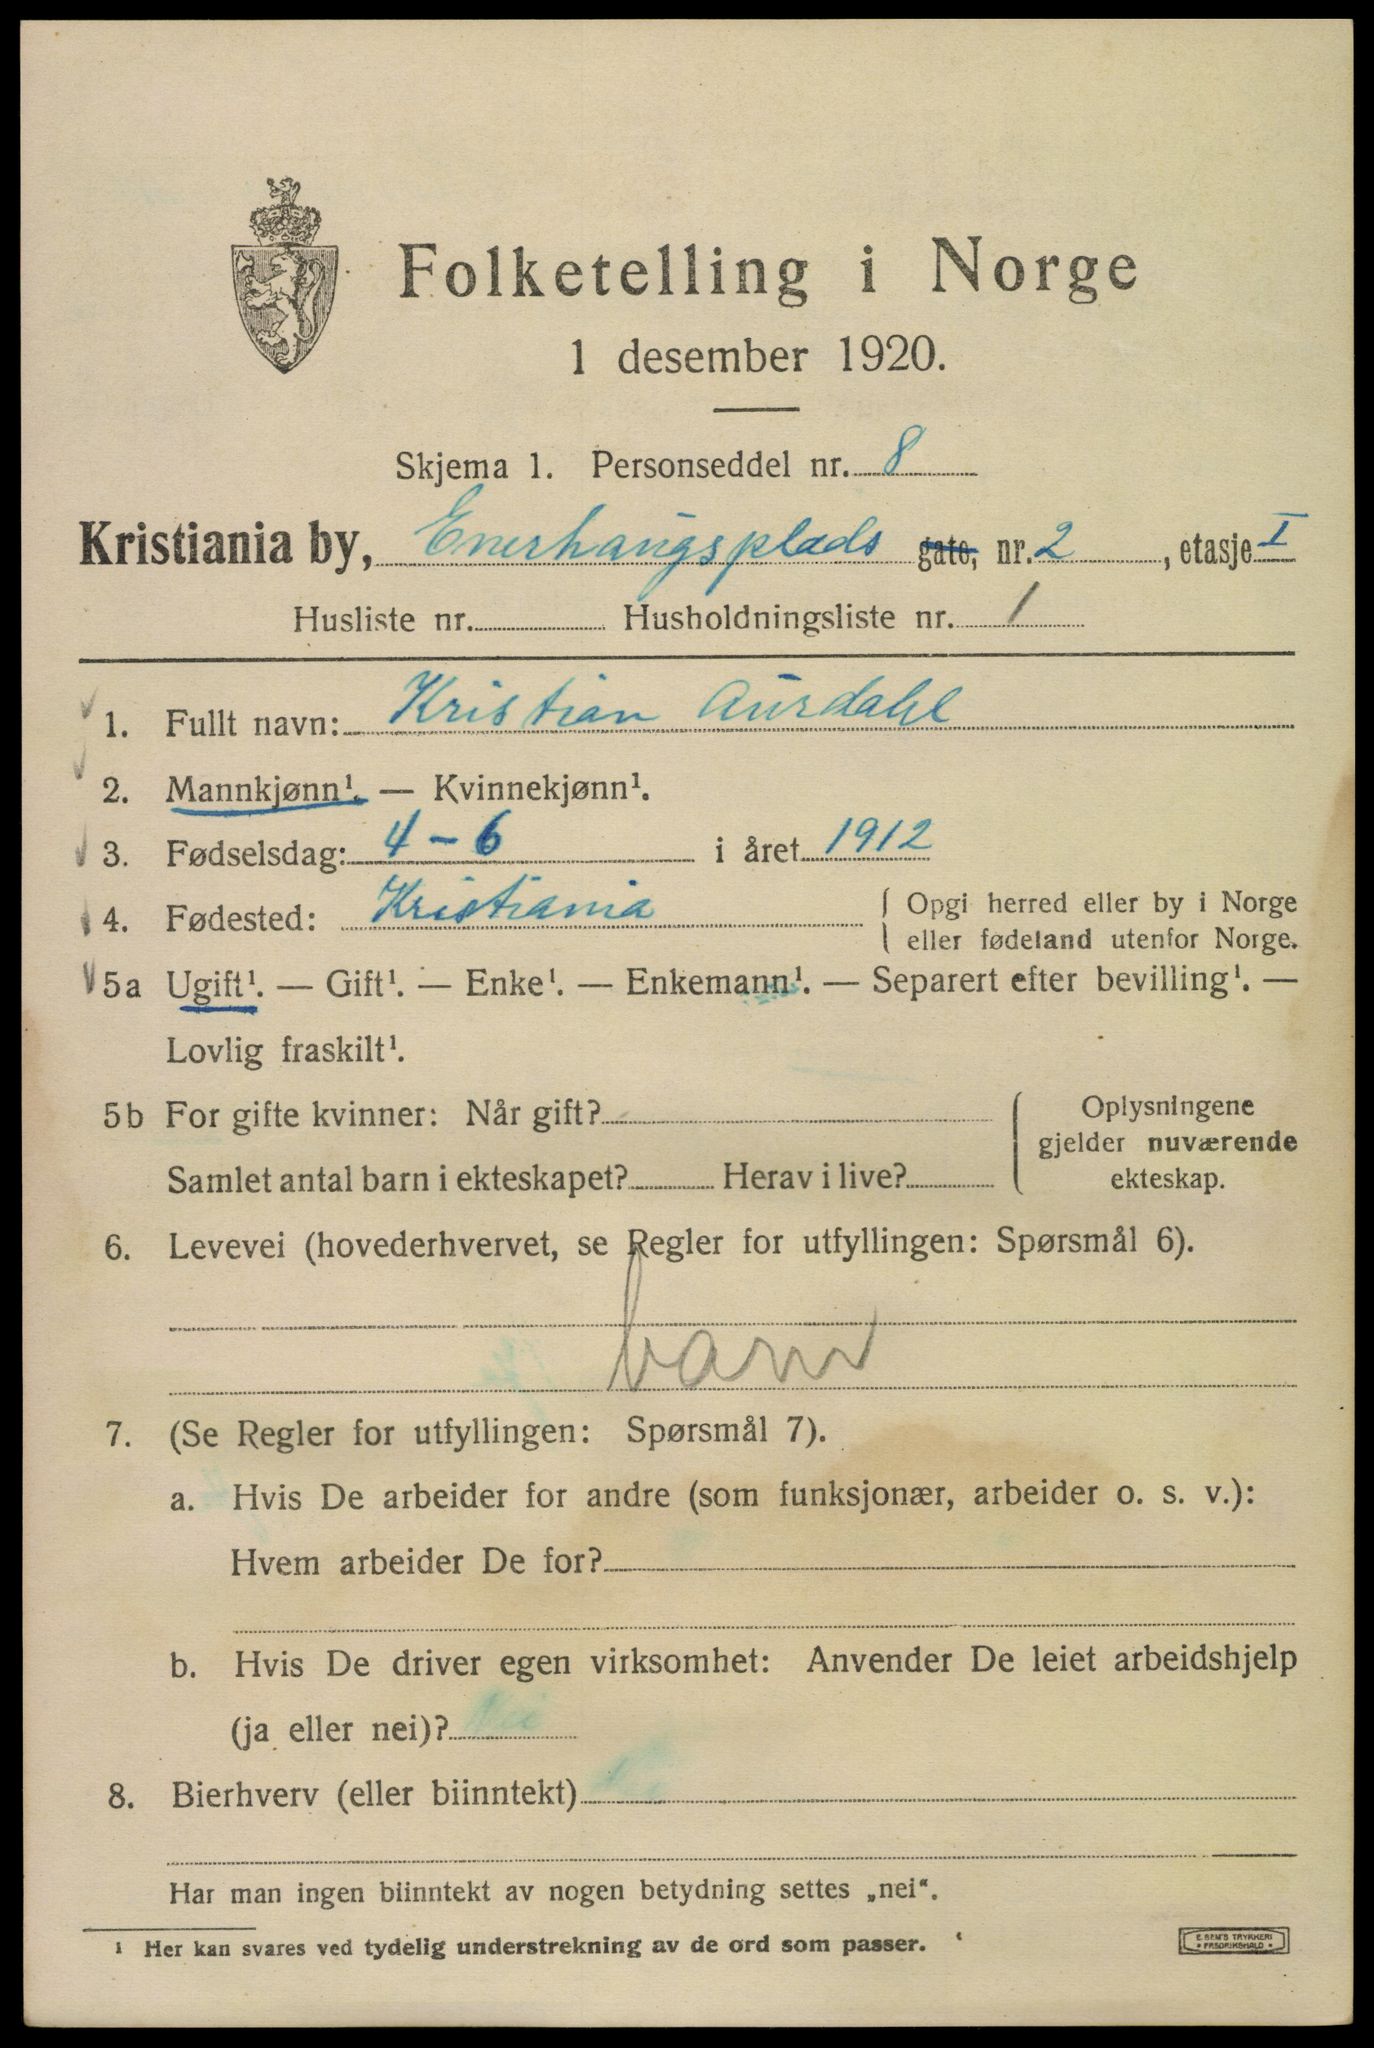 Folketelling i Norge
1 desember 1920.
Skjema 1. Personseddel nr. 8
Kristiania by, Enerhaugsplads gate, nr. 2, etasje I
Husliste nr. Husholdningsliste nr. 1
1. Fullt navn: Kristian Aurdahl
2. Mannkjønn¹. — Kvinnekjønn¹.
3. Fødselsdag: 4 – 6 i året 1912
4. Fødested: Kristiania { Opgi herred eller by i Norge
eller fødeland utenfor Norge.
5a Ugift¹. — Gift¹. — Enke¹. — Enkemann¹. — Separert efter bevilling¹. —
Lovlig fraskilt¹.
5b For gifte kvinner: Når gift? { Oplysningene
gjelder nuværende
Samlet antal barn i ekteskapet? Herav i live? ekteskap.
6. Levevei (hovederhvervet, se Regler for utfyllingen: Spørsmål 6).
barn
7. (Se Regler for utfyllingen: Spørsmål 7).
a. Hvis De arbeider for andre (som funksjonær, arbeider o. s. v.):
Hvem arbeider De for?
b. Hvis De driver egen virksomhet: Anvender De leiet arbeidshjelp
(ja eller nei)? Nei
8. Bierhverv (eller biinntekt) Nei
Har man ingen biinntekt av nogen betydning settes „nei“.
¹ Her kan svares ved tydelig understrekning av de ord som passer.
E SEM'S TRYKKERI
• FREDRIKSHALD •